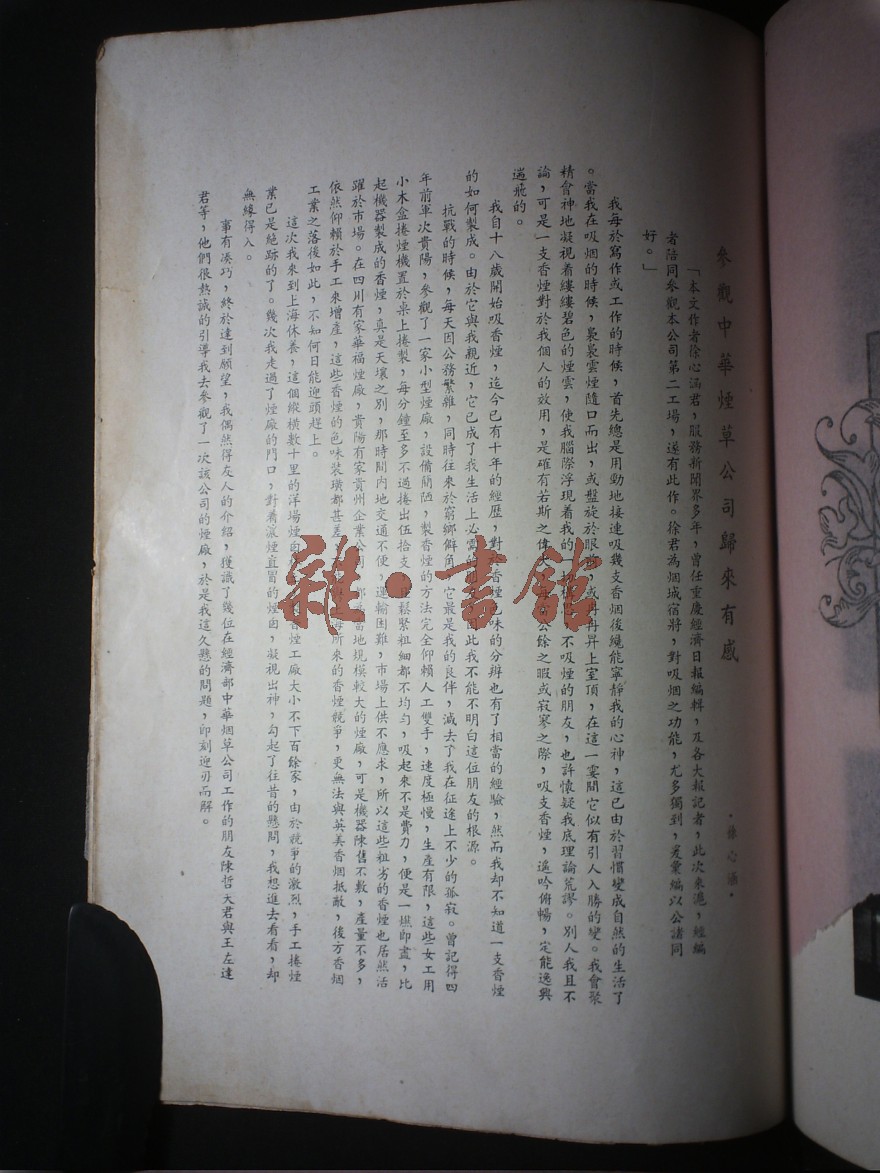 參觀中華煙草公司歸來有感
·徐心涵·
「本文作者徐心涵君，服務新聞界多年，曾任重慶經濟日報編輯，及各大報記者，此次來滬，經編
者陪同參觀本公司第二工場，遂有此作。徐君為烟城宿將，對吸烟之功能，尤多獨到，爰彙編以公諸同
好。」
我每於寫作或工作的時候，首先總是用勁地接連吸幾支香烟後纔能寧靜我的心神，這已由於習慣變成自然的生活了
。當我在吸烟的時候，裊裊雲煙隨口而出，或盤旋於眼 或冉冉昇上室頂，在這一霎間它似有引人入勝的變。我會聚
精會神地凝視着縷縷碧色的煙雲，使我腦際浮現着我的 不吸煙的朋友，也許懷疑我底理論荒謬。別人我且不
論，可是一支香煙對於我個人的效用，是確有若斯之偉大 公餘之暇或寂寥之際，吸支香煙，遙吟俯暢，定能逸興
遄飛的。
我自十八歲開始吸香煙，迄今已有十年的經歷，對於香煙色味的分辨也有了相當的經驗，然而我却不知道一支香煙
的如何製成。由於它與我親近，它已成了我生活上必需 因此我不能不明白這位朋友的根源。
抗戰的時候，每天因公務繁雜，同時往來於窮鄉僻角 它最是我的良伴，減去了我在征途上不少的孤寂。曾記得四
年前軍次貴陽，參觀了一家小型煙廠，設備簡陋，製香煙的方法完全仰賴人工雙手，速度極慢，生產有限，這些女工用
小木盒捲煙機置於桌上捲製，每分鐘至多不過捲出伍拾支 鬆緊粗細都不均勻，吸起來不是費力，便是一燃即盡，比
起機器製成的香煙，真是天壤之別，那時間内地交通不便，運輸困難，市場上供不應求，所以這些粗劣的香煙也居然活
躍於市場。在四川有家華福煙廠，貴陽有家貴州企業公司 當地規模較大的煙廠，可是機器陳舊不敷，產量不多，
依然仰賴於手工來增產，這些香煙的色味裝璜都甚差 上海所來的香煙競爭，更無法與英美香烟抵敵，後方香烟
工業之落後如此，不知何日能迎頭趕上。
這次我來到上海休養，這個縱橫數十里的洋場煙 香煙工廠大小不下百餘家，由於競爭的激烈，手工捲煙
業已是絕跡的了。幾次我走過了煙廠的門口，對着滾煙直冒的煙囱，凝視出神，勾起了往昔的懸問，我想進去看看，却
無緣得入。
事有湊巧，終於達到願望，我偶然得友人的介紹，獲識了幾位在經濟部中華烟草公司工作的朋友陳哲天君與王左達
君等，他們很熱誠的引導我去參觀了一次該公司的煙廠，於是我這久懸的問題，即刻迎刃而解。
雜·書館